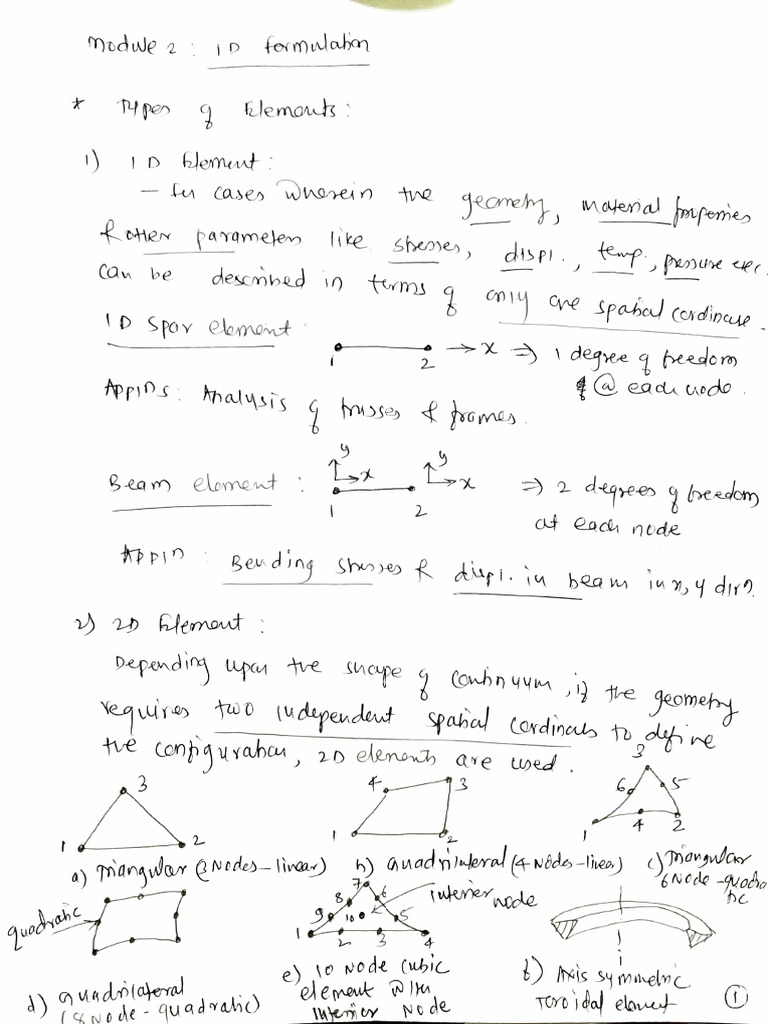 Module 2 : 1D formulation
* Types of Elements:
1) 1D Element:
– for cases wherein the geometry, material properties
& other parameters like stresses, displ., temp, pressure etc.
can be described in terms of only one spatial cordinate.
1D spar element:
1 2 → x ⇒ 1 degree of freedom
@ each node.
Applns: Analysis of trusses & frames.
y y
Beam element : x x ⇒ 2 degrees of freedom
1 2 at each node
Appln : Bending stresses & displ. in beam in x, y dirn.
2) 2D Element :
Depending upon the shape of continuum, if the geometry
requires two independent spatial cordinats to define
the configuration, 2D elements are used.
3 4 3 3
6 5
1 2 1 2 1 4 2
a) Triangular (3 Nodes – linear) b) quadrilateral (4 Nodes – linear) c) Triangular
6 Node – quadra
tic
quadratic
7 6 interior node
8
9 10 5
1 2 3 4
d) quadrilateral
(8 Node – quadratic)
e) 10 Node cubic
element with
interior Node
f) Axis symmetric
Toroidal element
1